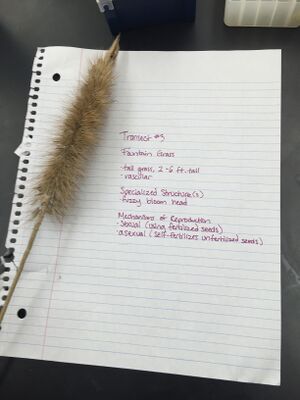 Transect #3
Fountain Grass
-tall grass, 2-6 ft. tall
-vascular
Specialized Structure(s)
-fuzzy bloom head
Mechanisms of Reproduction
-sexual (using fertilized seeds)
-asexual (self-fertilizes unfertilized seeds)